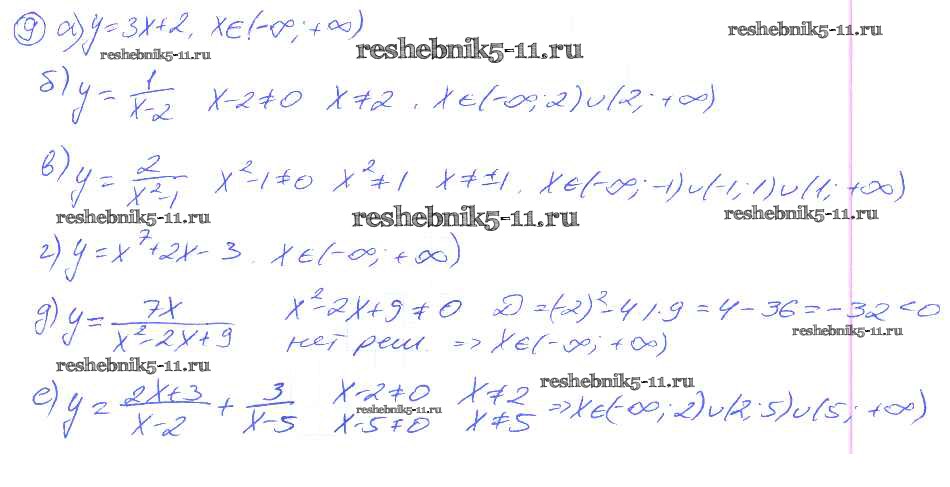 9) а) y = 3x+2, x∈(-∞; +∞)
reshebnik5-11.ru
reshebnik5-11.ru
reshebnik5-11.ru
б) y = 1/(x-2) x-2≠0 x≠2. x∈(-∞; 2)∪(2; +∞)
в) y = 2/(x²-1) x²-1≠0 x²≠1 x≠±1. x∈(-∞; -1)∪(-1; 1)∪(1; +∞)
reshebnik5-11.ru
reshebnik5-11.ru
reshebnik5-11.ru
г) y = x⁷+2x-3. x∈(-∞; +∞)
д) y = 7x/(x²-2x+9) x²-2x+9≠0 D=(-2)²-4·1·9=4-36=-32<0
reshebnik5-11.ru
нет реш. => x∈(-∞; +∞)
reshebnik5-11.ru
reshebnik5-11.ru
е) y = (2x+3)/(x-2) + 3/(x-5) x-2≠0 x≠2 => x∈(-∞; 2)∪(2; 5)∪(5; +∞)
reshebnik5-11.ru
x-5≠0 x≠5